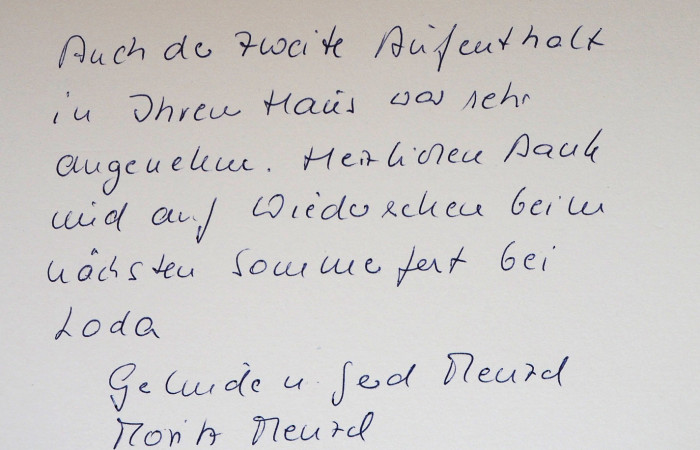 Auch der zweite Aufenthalt
in Ihrem Haus war sehr
angenehm. Herzlichen Dank
und auf Wiedersehen beim
nächsten Sommerfest bei
Loda
Gerlinde u. Gerd Menzel
Moritz Menzel